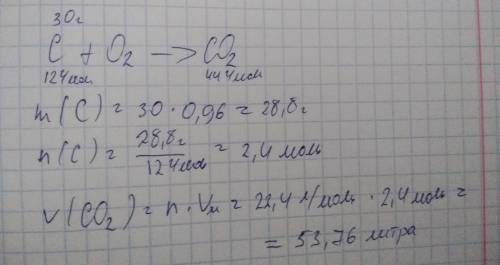 30г
C + O₂ —> CO₂
12г/моль 44г/моль
m(C) = 30 · 0,96 = 28,8г
n(C) = 28,8г / 12г/моль = 2,4 моль
V(CO₂) = n · Vм = 22,4 л/моль · 2,4 моль =
= 53,76 литра